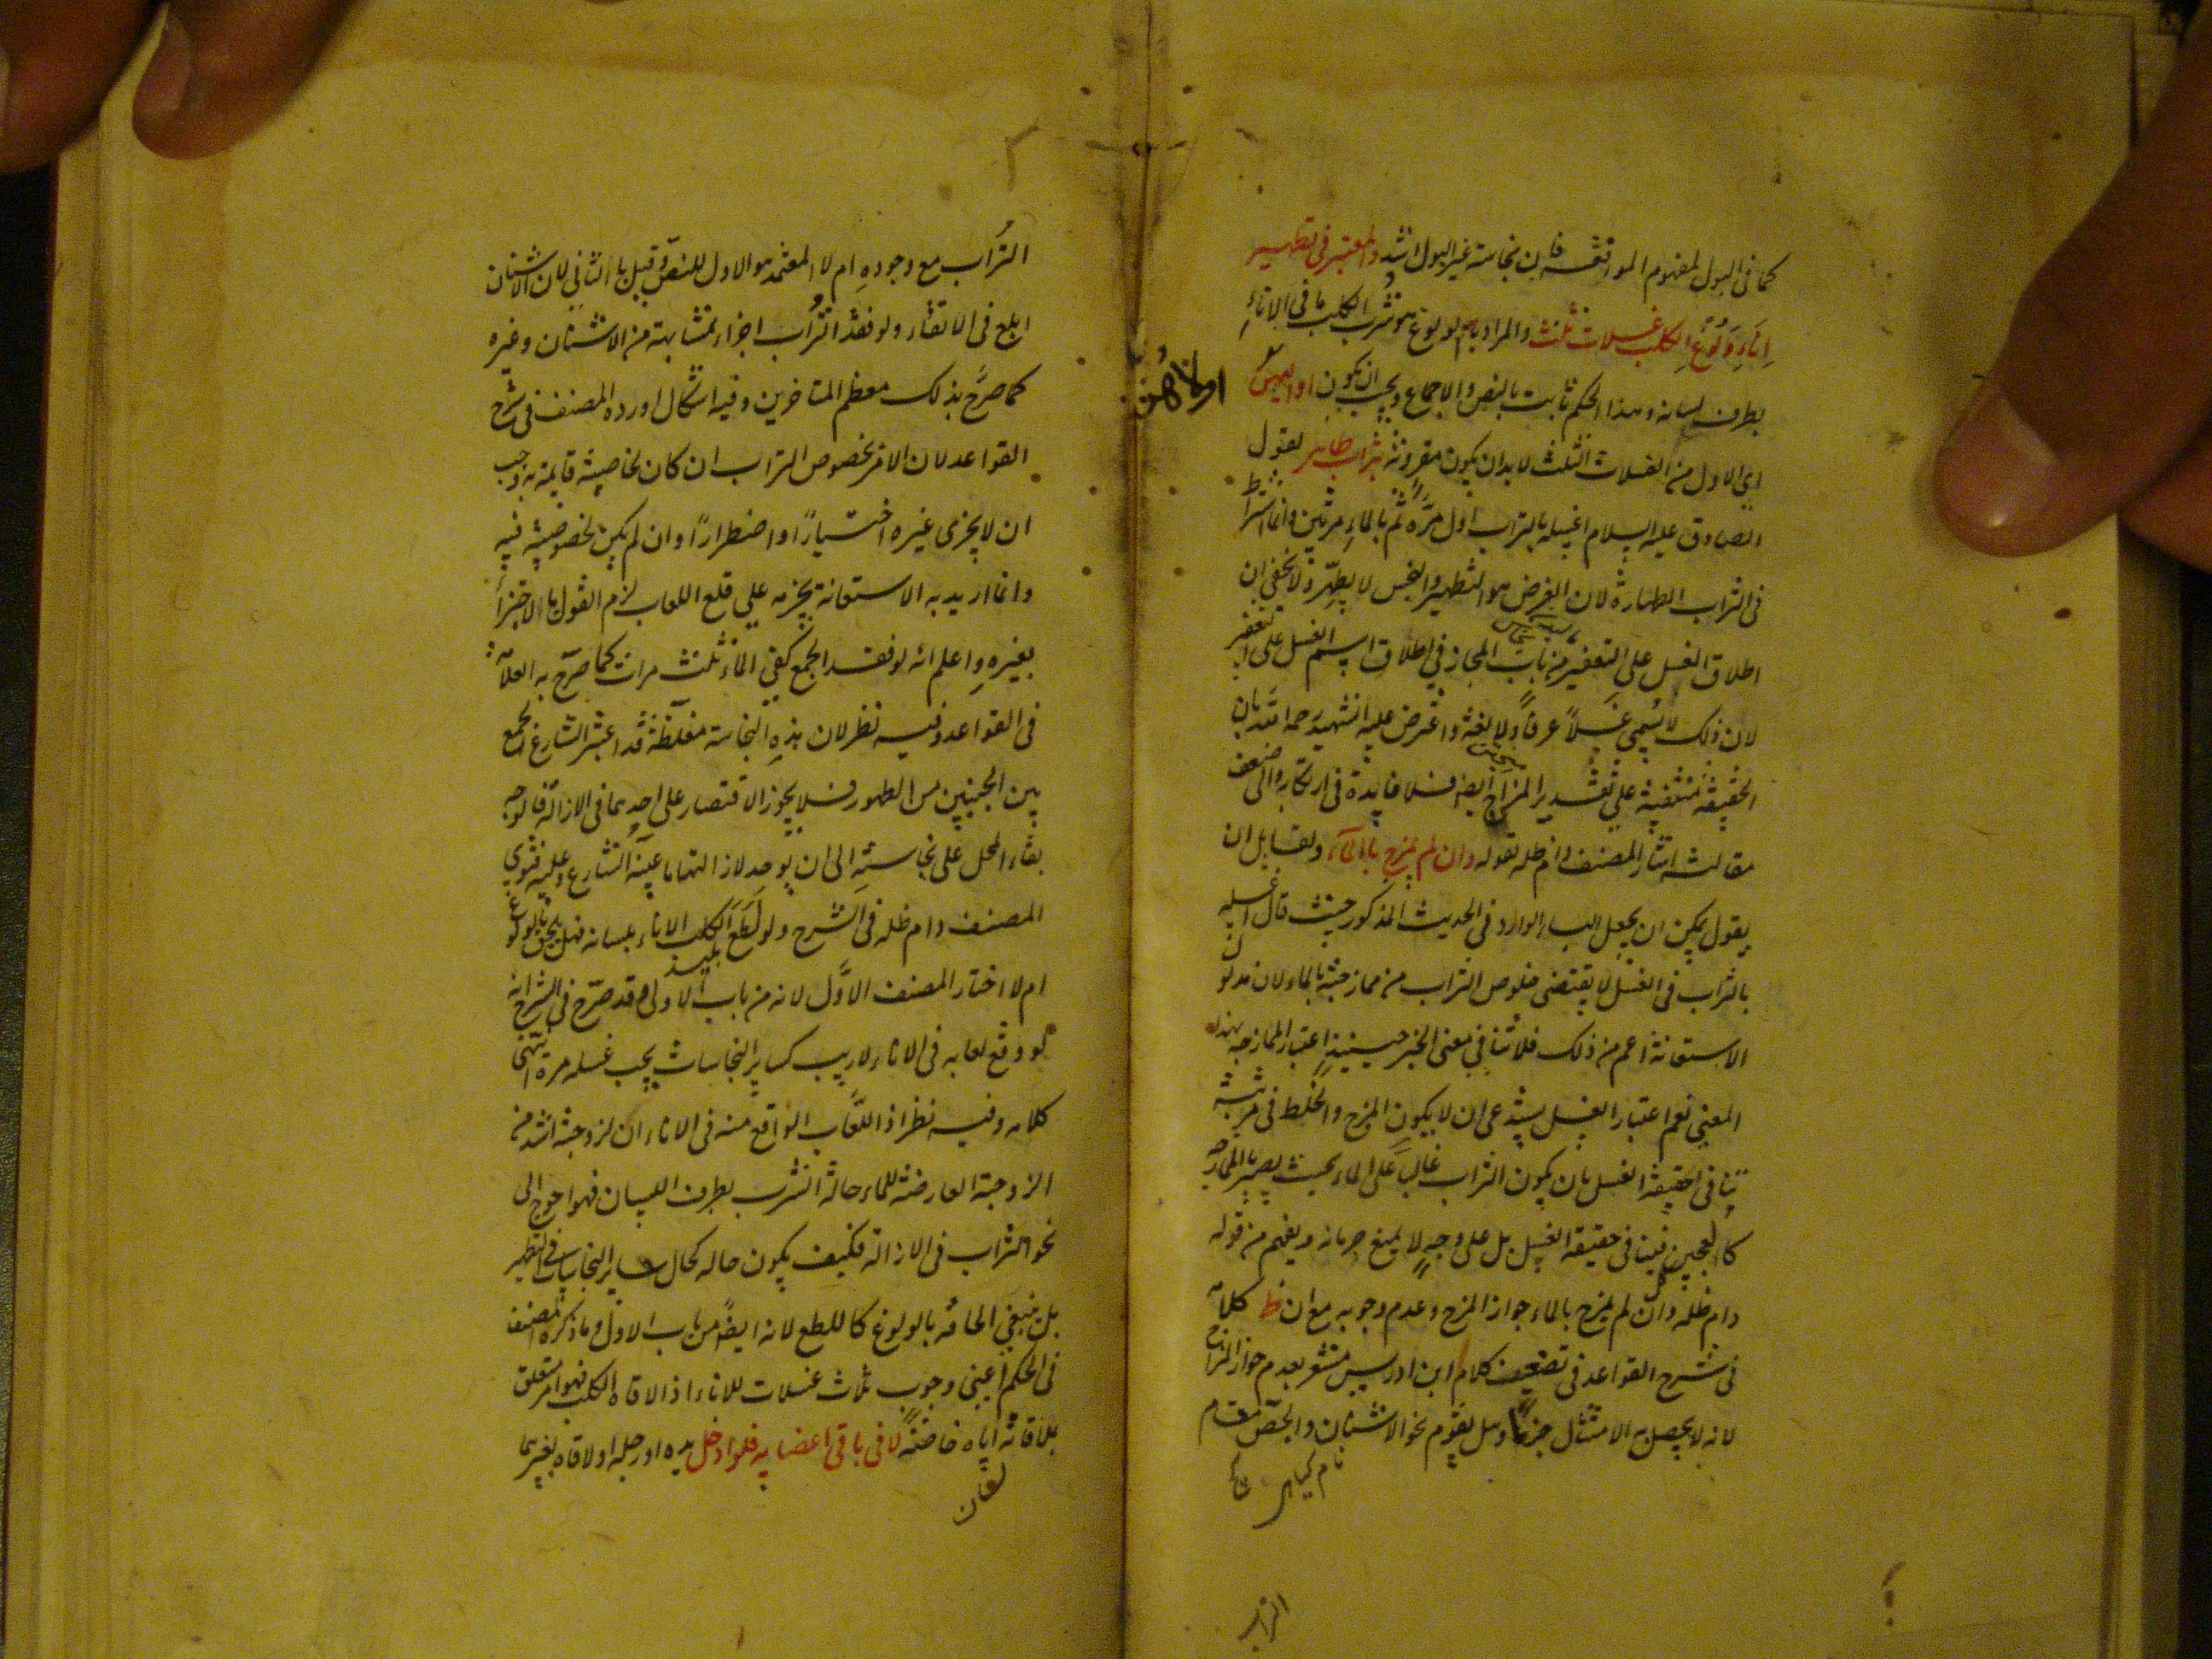 كما فى البول لمفهوم الموافقه فان نجاسة غير البول اشد والمعتبر فى تطهير
اناء ولوغ الكلب غسلات ثلث والمراد بالولوغ هو شرب الكلب ما فى الاناء
بطرف لسانه وهذا الحكم ثابت بالنص والاجماع ويجب ان يكون اوليهن
اولاهن
اى الاول من الغسلات الثلث لابد ان يكون مقرونة بتراب طاهر لقول
الصادق عليه السلام اغسله بالتراب اول مرة ثم بالماء مرتين وانما اشترط
فى التراب الطهارة لان الغرض هو التطهير والنجس لا يطهر ولا يخفى ان
اطلاق الغسل على التعفير من باب المجاز فى اطلاق اسم الغسل على التعفير
لان ذلك لا يسمى غسلا عرفا ولا لغة واعترض عليه الشهيد رحمه الله بان
الحقيقة منتفية على تقدير المزاج ايضا فلا فايدة فى ارتكابه والى ضعف
مقالته اشار المصنف دام ظله بقوله وان لم يمزج بالماء ولقايل ان
يقول يمكن ان يجعل الباء الوارد فى الحديث المذكور حيث قال اغسله
بالتراب فى الغسل لا يقتضى خلوص التراب من ممازجته بالماء لان مدلول
الاستعانة اعم من ذلك فلا تنافى معنى الخبر حينئذ اعتبار الممازجه بهذا
المعنى نعم اعتبار الغسل يستدعى ان لا يكون المزج والخلط فى مرتبة
تنافى حقيقة الغسل بان يكون التراب غالبا على الماء بحيث يصير بالممازجة
كالعجين فينافى حقيقة الغسل بل على وجه لا يمنع جريانه ويفهم من قوله
دام ظله وان لم يمزج بالماء جواز المزج وعدم وجوبه مع ان ظ كلامه
فى شرح القواعد فى تضعيف كلام ابن ادريس مشعر بعدم جواز المزاج
لانه لا يحصل به الامتثال جزما وهل يقوم نحو الاشنان والجص مقام
نام كياهى
التراب مع وجوده ام لا المعتمد هو الاول للنص وقيل بالثانى لان الاشنان
ابلغ فى الانقاء ولو فقد التراب اجزاء مشابهة من الاشنان وغيره
كما صرح بذلك معظم المتاخرين وفيه اشكال اورده المصنف فى شرح
القواعد لان الامر بخصوص التراب ان كان لخاصية قايمة به وجب
ان لا يجزى غيره اختيارا واضطرارا وان لم يكن لخصوصية فيه
وانما اريد به الاستعانة بجرمه على قلع اللعاب لزم القول بالاجتزاء
بغيره واعلم انه لو فقد الجمع كفى الماء ثلث مرات كما صرح به العلامة
فى القواعد وفيه نظر لان هذه النجاسة مغلظة قد اعتبر الشارع الجمع
بين الجنسين من الطهور فلا يجوز الاقتصار على احديهما فى الازالة فالوجه
بقاء المحل على نجاسته الى ان يوجد لازالتها ما عينه الشارع وعليه فتوى
المصنف دام ظله فى الشرح ولو لطع الكلب الاناء بلسانه فهل يلحق بالولوغ
ام لا اختار المصنف الاول لانه من باب الاولى وقد صرح فى الشرح انه
لو وقع لعابه فى الاناء لا ريب كساير النجاسات يجب غسله مرة انتهى
كلامه وفيه نظر اذ اللعاب الواقع منه فى الاناء ان لزوجته اشد من
الزوجة العارضة للماء حالة الشرب بطرف اللسان فهو احوج الى
نحو التراب فى الازالة فكيف يكون حاله كحال ساير النجاسات فى التطهير
بل ينبغى الحاقه بالولوغ كاللطع لانه ايضا من باب الاولى وما ذكره المصنف
فى الحكم اعنى وجوب ثلاث غسلات للاناء اذا لاقاه الكلب فهو امر متعلق
بملاقاته اياه خاصة لا فى باقى اعضايه فلو ادخل يده او رجله او لاقاه بغيرهما
لعابه